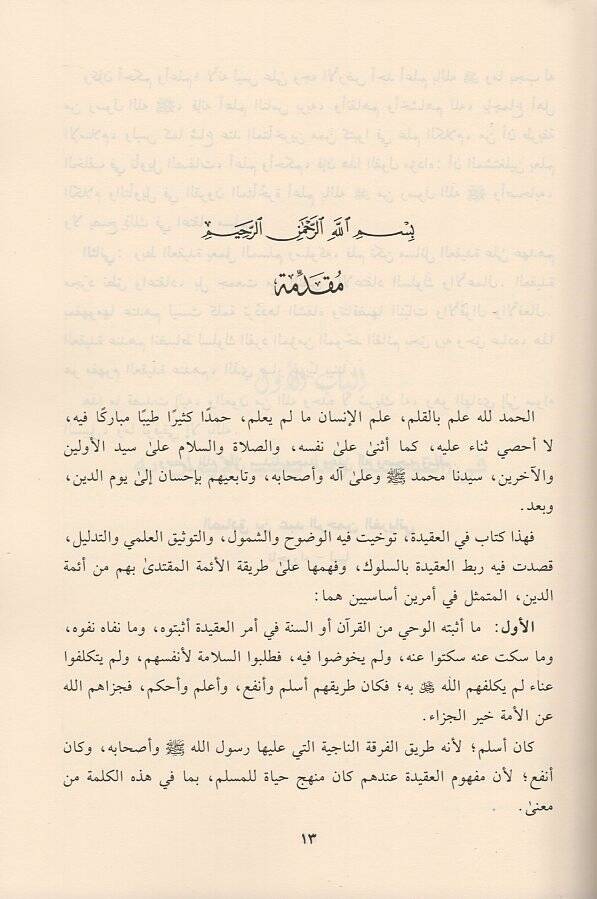 بِسْمِ اللَّهِ الرَّحْمَٰنِ الرَّحِيمِ
مُقَدِّمَة
الحمد لله علم بالقلم، علم الإنسان ما لم يعلم، حمدًا كثيرًا طيبًا مباركًا فيه،
لا أحصي ثناء عليه، كما أثنىٰ علىٰ نفسه، والصلاة والسلام علىٰ سيد الأولين
والآخرين، سيدنا محمد ﷺ وعلىٰ آله وأصحابه، وتابعيهم بإحسان إلىٰ يوم الدين،
وبعد.
فهذا كتاب في العقيدة، توخيت فيه الوضوح والشمول، والتوثيق العلمي والتدليل،
قصدت فيه ربط العقيدة بالسلوك، وفهمها علىٰ طريقة الأئمة المقتدىٰ بهم من أئمة
الدين، المتمثل في أمرين أساسيين هما:
الأول: ما أثبته الوحي من القرآن أو السنة في أمر العقيدة أثبتوه، وما نفاه نفوه،
وما سكت عنه سكتوا عنه، ولم يخوضوا فيه، فطلبوا السلامة لأنفسهم، ولم يتكلفوا
عناء لم يكلفهم الله ﷻ به؛ فكان طريقهم أسلم وأنفع، وأعلم وأحكم، فجزاهم الله
عن الأمة خير الجزاء.
كان أسلم؛ لأنه طريق الفرقة الناجية التي عليها رسول الله ﷺ وأصحابه، وكان
أنفع؛ لأن مفهوم العقيدة عندهم كان منهج حياة للمسلم، بما في هذه الكلمة من
معنىٰ.
١٣